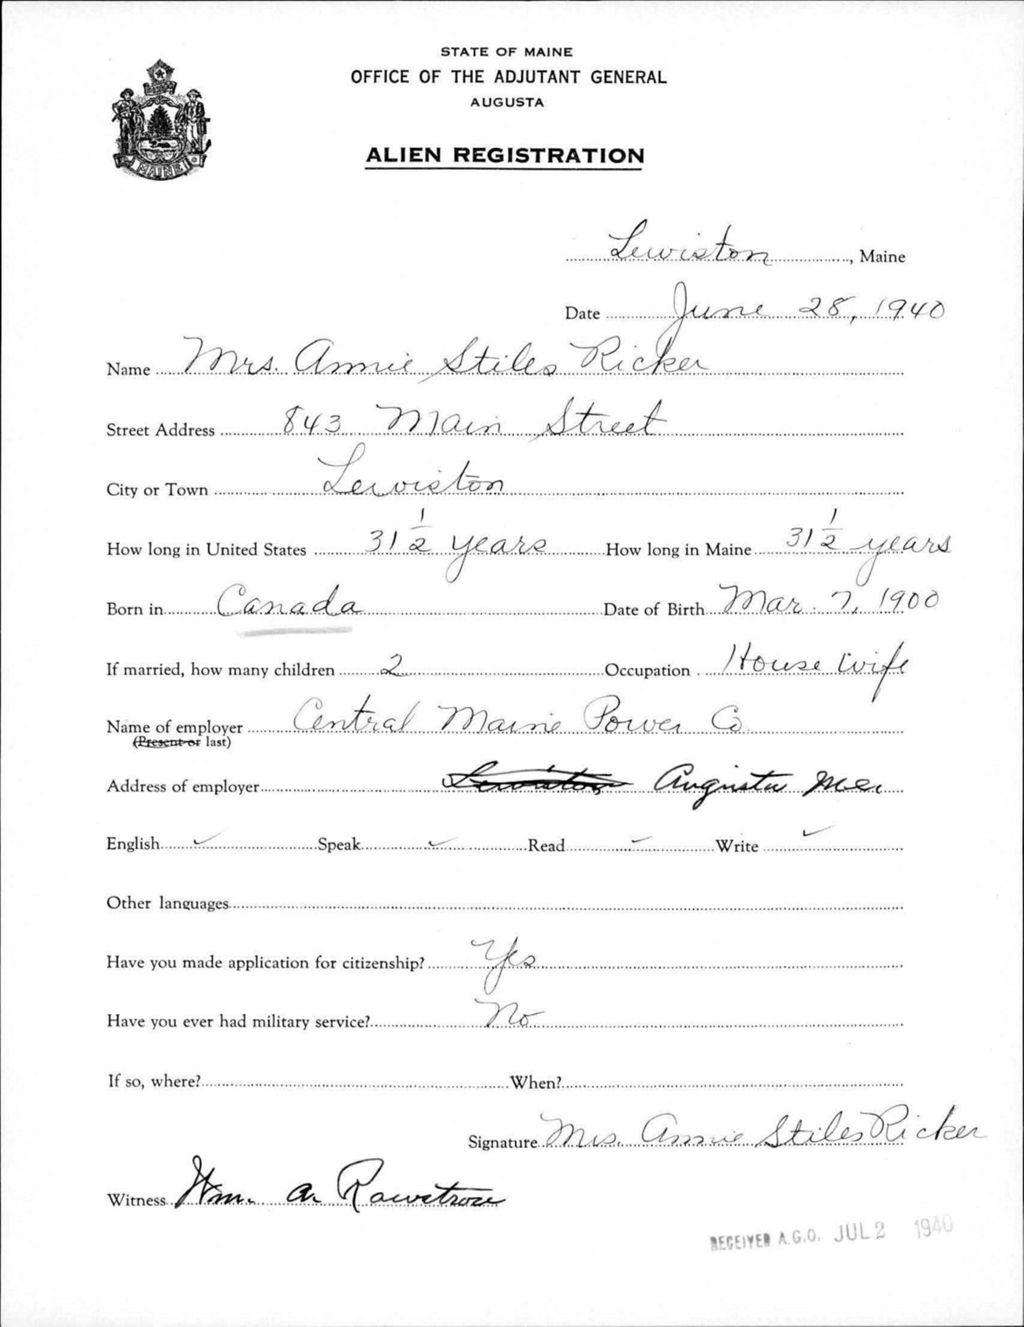 STATE OF MAINE
OFFICE OF THE ADJUTANT GENERAL
AUGUSTA
ALIEN REGISTRATION
MAINE
Lewiston, Maine
Date June 28, 1940
Name Mrs. Annie Stiles Ricker
Street Address 843 Main Street
City or Town Lewiston
How long in United States 31 1/2 years How long in Maine 31 1/2 years
Born in Canada Date of Birth Mar. 7, 1900
If married, how many children 2 Occupation House wife
Name of employer Central Maine Power Co.
(Present or last)
Address of employer Lewiston Augusta Me.
English ✓ Speak ✓ Read ✓ Write ✓
Other languages
Have you made application for citizenship? Yes
Have you ever had military service? No
If so, where? When?
Signature Mrs. Annie Stiles Ricker
Witness Wm. A. Rawstron
RECEIVED A.G.O. JUL 2 1940